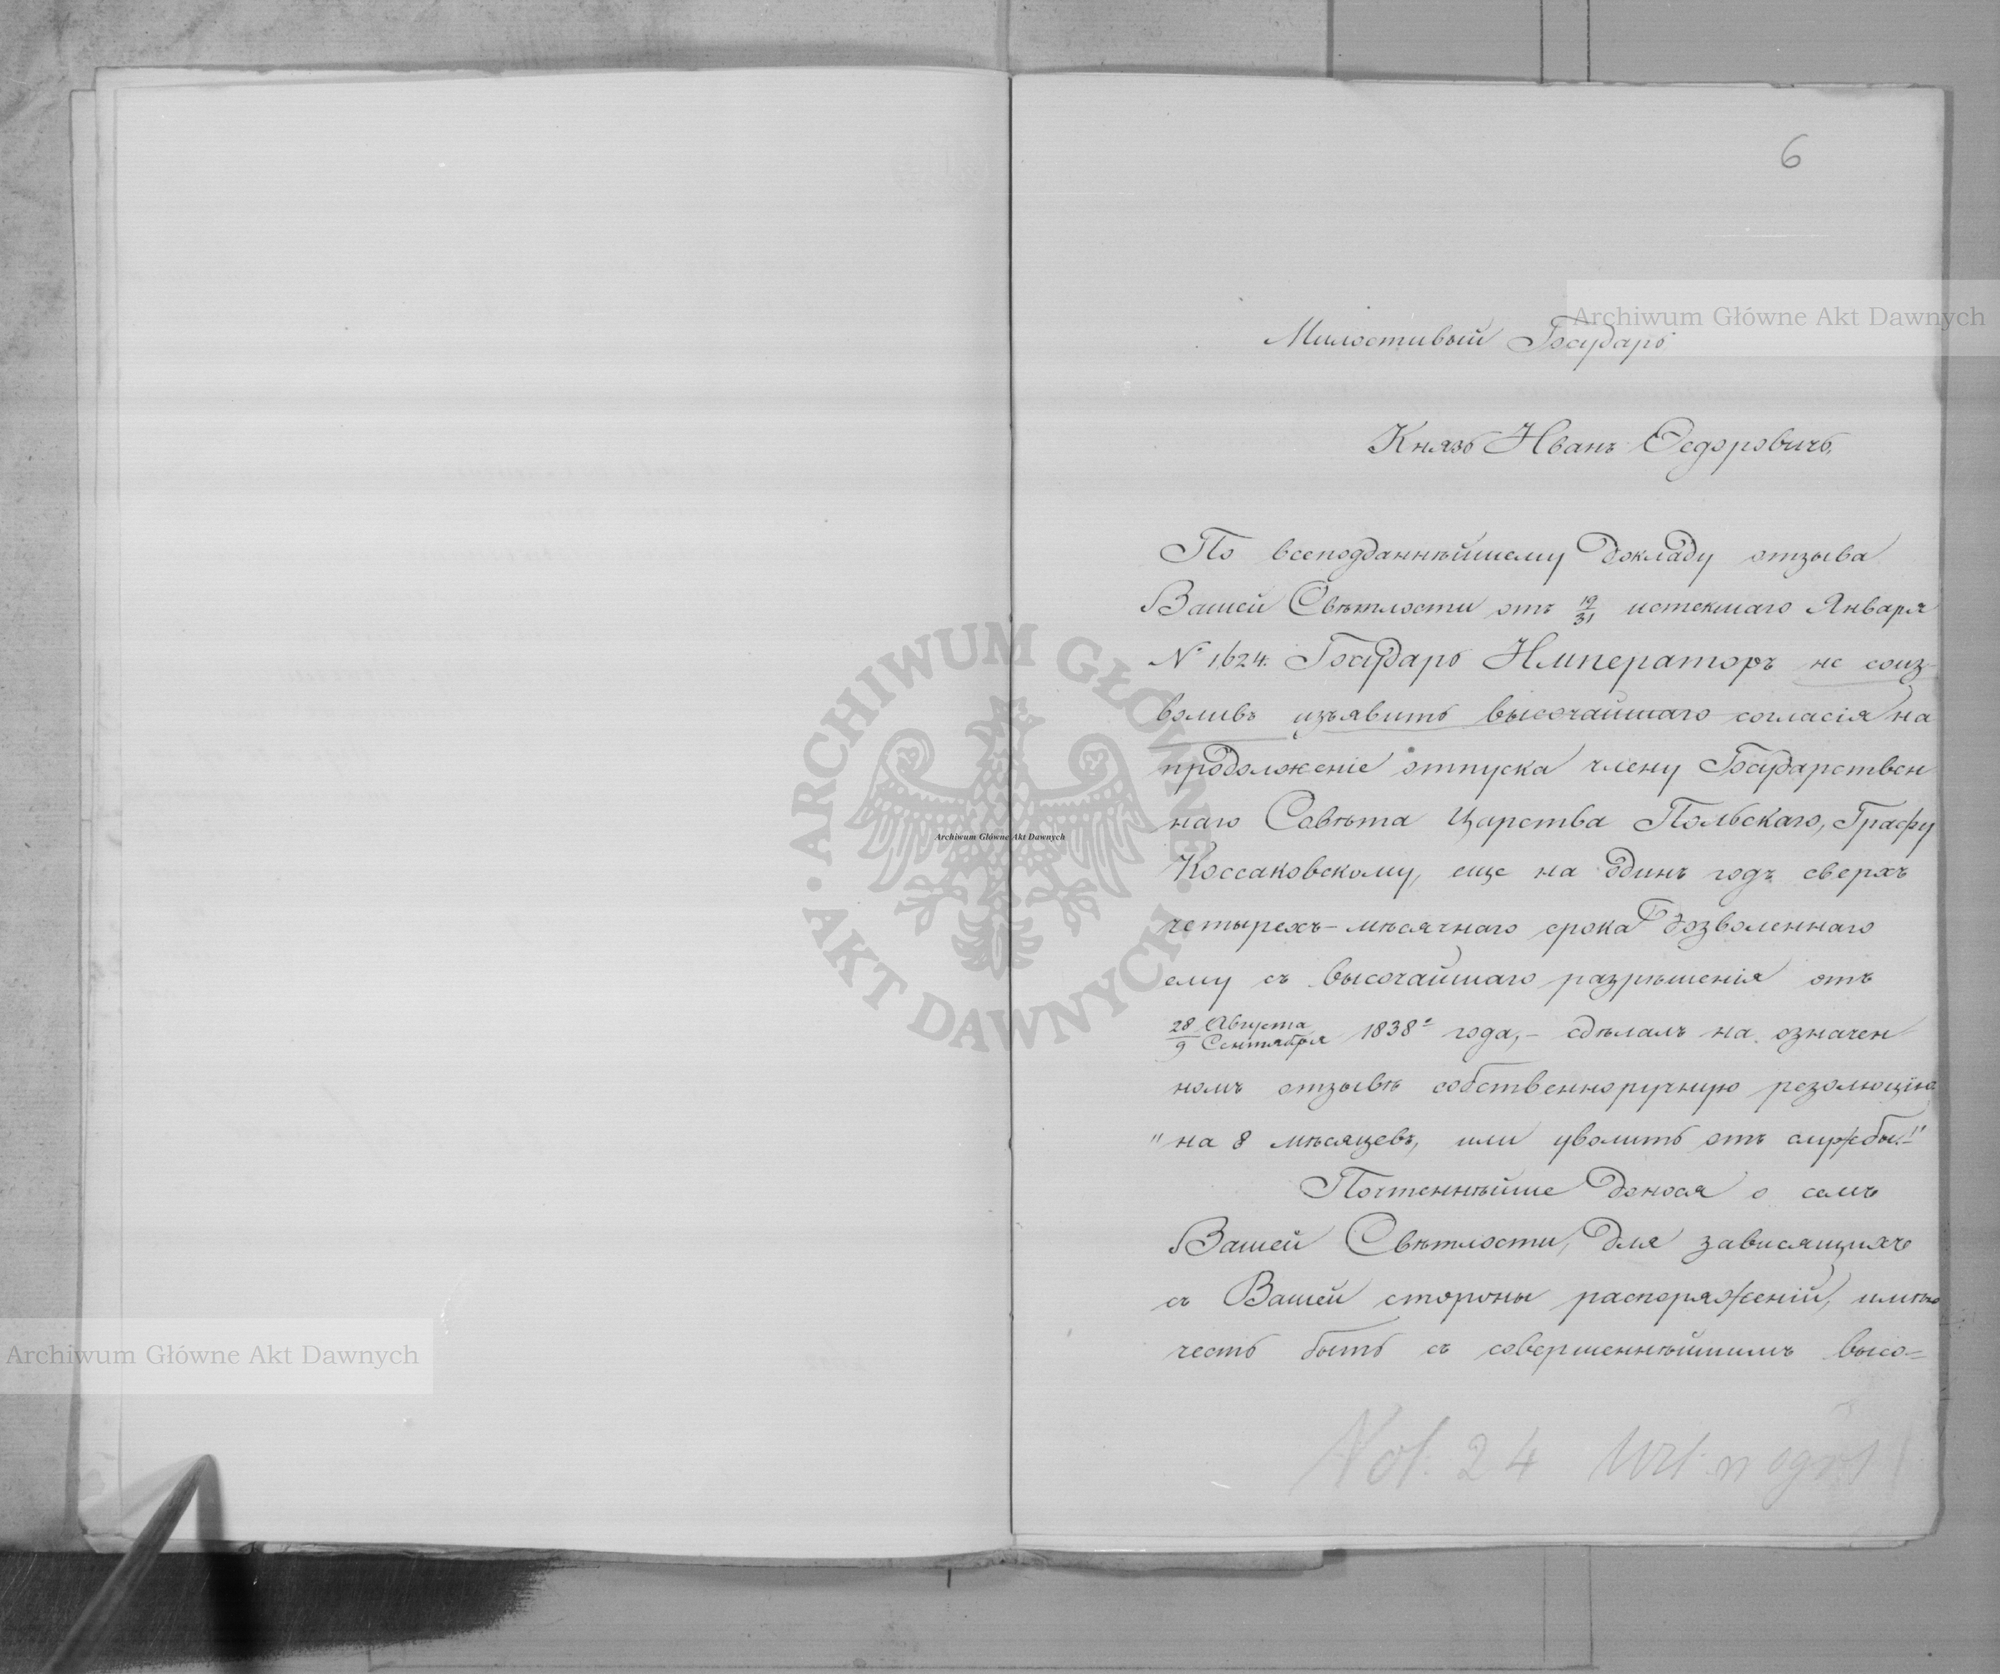 6
Archiwum Główne Akt Dawnych
Милостивый Государь
Князь Иванъ Ѳедоровичъ,
По всеподданнѣйшему докладу отзыва
Вашей Свѣтлости отъ 19/31 истекшаго Января
№ 1624. Государь Императоръ не соиз-
воливъ изъявить высочайшаго согласія на
продолженіе отпуска члену Государствен
наго Совѣта Царства Польскаго, Графу
Коссаковскому, еще на одинъ годъ сверхъ
четырехъ-мѣсячнаго срока дозволеннаго
ему съ высочайшаго разрѣшенія отъ
28 Августа/9 Сентября 1838г года,- сдѣлалъ на означен
номъ отзывѣ собственноручную резолюцію
"на 8 мѣсяцевъ, или уволить отъ службы."
Почтеннѣйше донося о семъ
Вашей Свѣтлости, для зависящихъ
съ Вашей стороны распоряженій, имѣю
честь быть съ совершеннѣйшимъ высо=
Vol. 24
ARCHIWUM GŁÓWNE • AKT DAWNYCH •
Archiwum Główne Akt Dawnych
Archiwum Główne Akt Dawnych